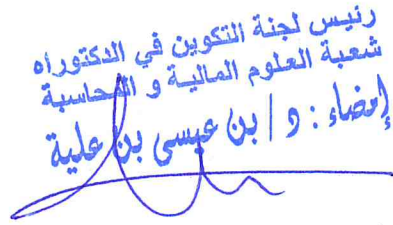 رئيس لجنة التكوين في الدكتوراه
شعبة العلوم المالية و المحاسبة
إمضاء : د / بن عيسى بن علية